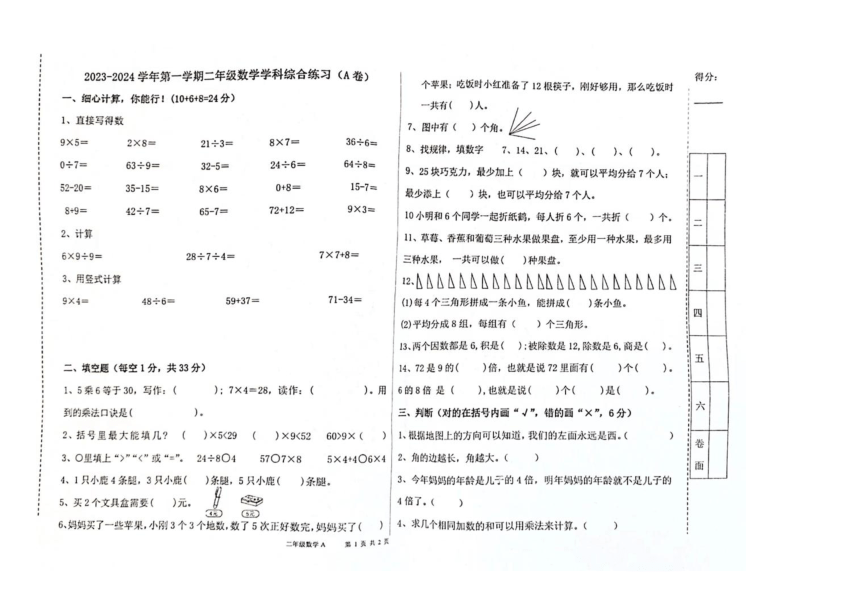 2023-2024 学年第一学期二年级数学学科综合练习（A 卷）
一、细心计算，你能行！(10+6+8=24 分)
1、直接写得数
9×5= 2×8= 21÷3= 8×7= 36÷6=
0÷7= 63÷9= 32-5= 24÷6= 64÷8=
52-20= 35-15= 8×6= 0+8= 15-7=
8+9= 42÷7= 65-7= 72+12= 9×3=
2、计算
6×9÷9= 28÷7÷4= 7×7+8=
3、用竖式计算
9×4= 48÷6= 59+37= 71-34=
二、填空题（每空 1 分，共 33 分）
1、5 乘 6 等于 30，写作：（ ）；7×4=28，读作：（ ）。用
到的乘法口诀是（ ）。
2、括号里最大能填几？ （ ）×5<29 （ ）×9<52 60>9×（ ）
3、○里填上“>”“<”或“=”。 24÷8○4 57○7×8 5×4+4○6×4
4、1 只小鹿 4 条腿，3 只小鹿（ ）条腿，5 只小鹿（ ）条腿。
5、买 2 个文具盒需要（ ）元。
6、妈妈买了一些苹果，小刚 3 个 3 个地数，数了 5 次正好数完，妈妈买了（ ）
二年级数学 A 第 1 页 共 2 页
个苹果；吃饭时小红准备了 12 根筷子，刚好够用，那么吃饭时
一共有（ ）人。
7、图中有（ ）个角。
8、找规律，填数字 7、14、21、（ ）、（ ）、（ ）。
9、25 块巧克力，最少加上（ ）块，就可以平均分给 7 个人；
最少添上（ ）块，也可以平均分给 7 个人。
10 小明和 6 个同学一起折纸鹤，每人折 6 个，一共折（ ）个。
11、草莓、香蕉和葡萄三种水果做果盘，至少用一种水果，最多用
三种水果， 一共可以做（ ）种果盘。
12、
(1)每 4 个三角形拼成一条小鱼，能拼成（ ）条小鱼。
(2)平均分成 8 组，每组有（ ）个三角形。
13、两个因数都是 6，积是（ ）；被除数是 12，除数是 6，商是（ ）。
14、72 是 9 的（ ）倍，也就是说 72 里面有（ ）个（ ）。
6 的 8 倍 是（ ），也就是说（ ）个（ ）是（ ）。
三、判断（对的在括号内画“√”，错的画“×”，6 分）
1、根据地图上的方向可以知道，我们的左面永远是西。（ ）
2、角的边越长，角越大。（ ）
3、今年妈妈的年龄是儿子的 4 倍，明年妈妈的年龄就不是儿子的
4 倍了。（ ）
4、求几个相同加数的和可以用乘法来计算。（ ）
得分：
一
二
三
四
五
六
卷
面